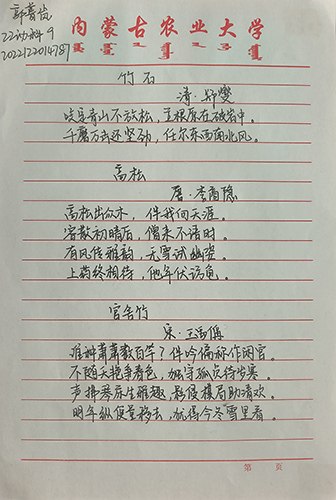 郭蓉尚
22动科9
2022122014787
内蒙古农业大学
竹石
清·郑燮
咬定青山不放松,立根原在破岩中。
千磨万击还坚劲,任尔东西南北风。
高松
唐·李商隐
高松出众木,伴我向天涯。
客散初晴后,僧来不语时。
有风传雅韵,无雪试幽姿。
上药终相待,他年伏访龟。
官舍竹
宋·王禹偁
谁种萧萧数百竿?伴吟偏称作闲官。
不随夭艳争春色,独守孤贞待岁寒。
声拂琴床生雅趣,影侵棋局助清欢。
明年纵便量移去,犹得今冬雪里看。
第 页